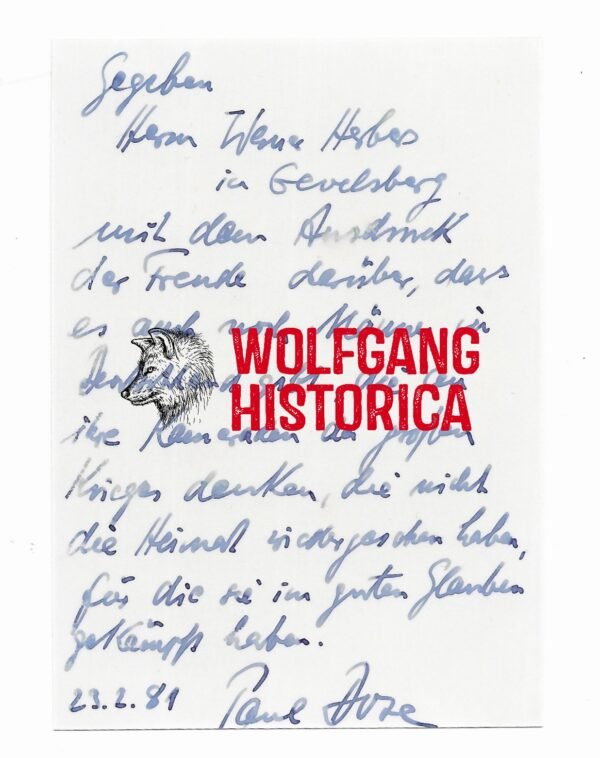 Gegeben
Herrn Werner Herbers
in Gevelsberg
mit dem Ausdruck
der Freude darüber, dass
es auch noch Männer in
WOLFGANG
Deutschland gibt, die an
HISTORICA
ihre Kameraden des großen
Krieges denken, die nicht
die Heimat wiedergesehen haben,
für die sie im guten Glauben
gekämpft haben.
23.2.81 Paul